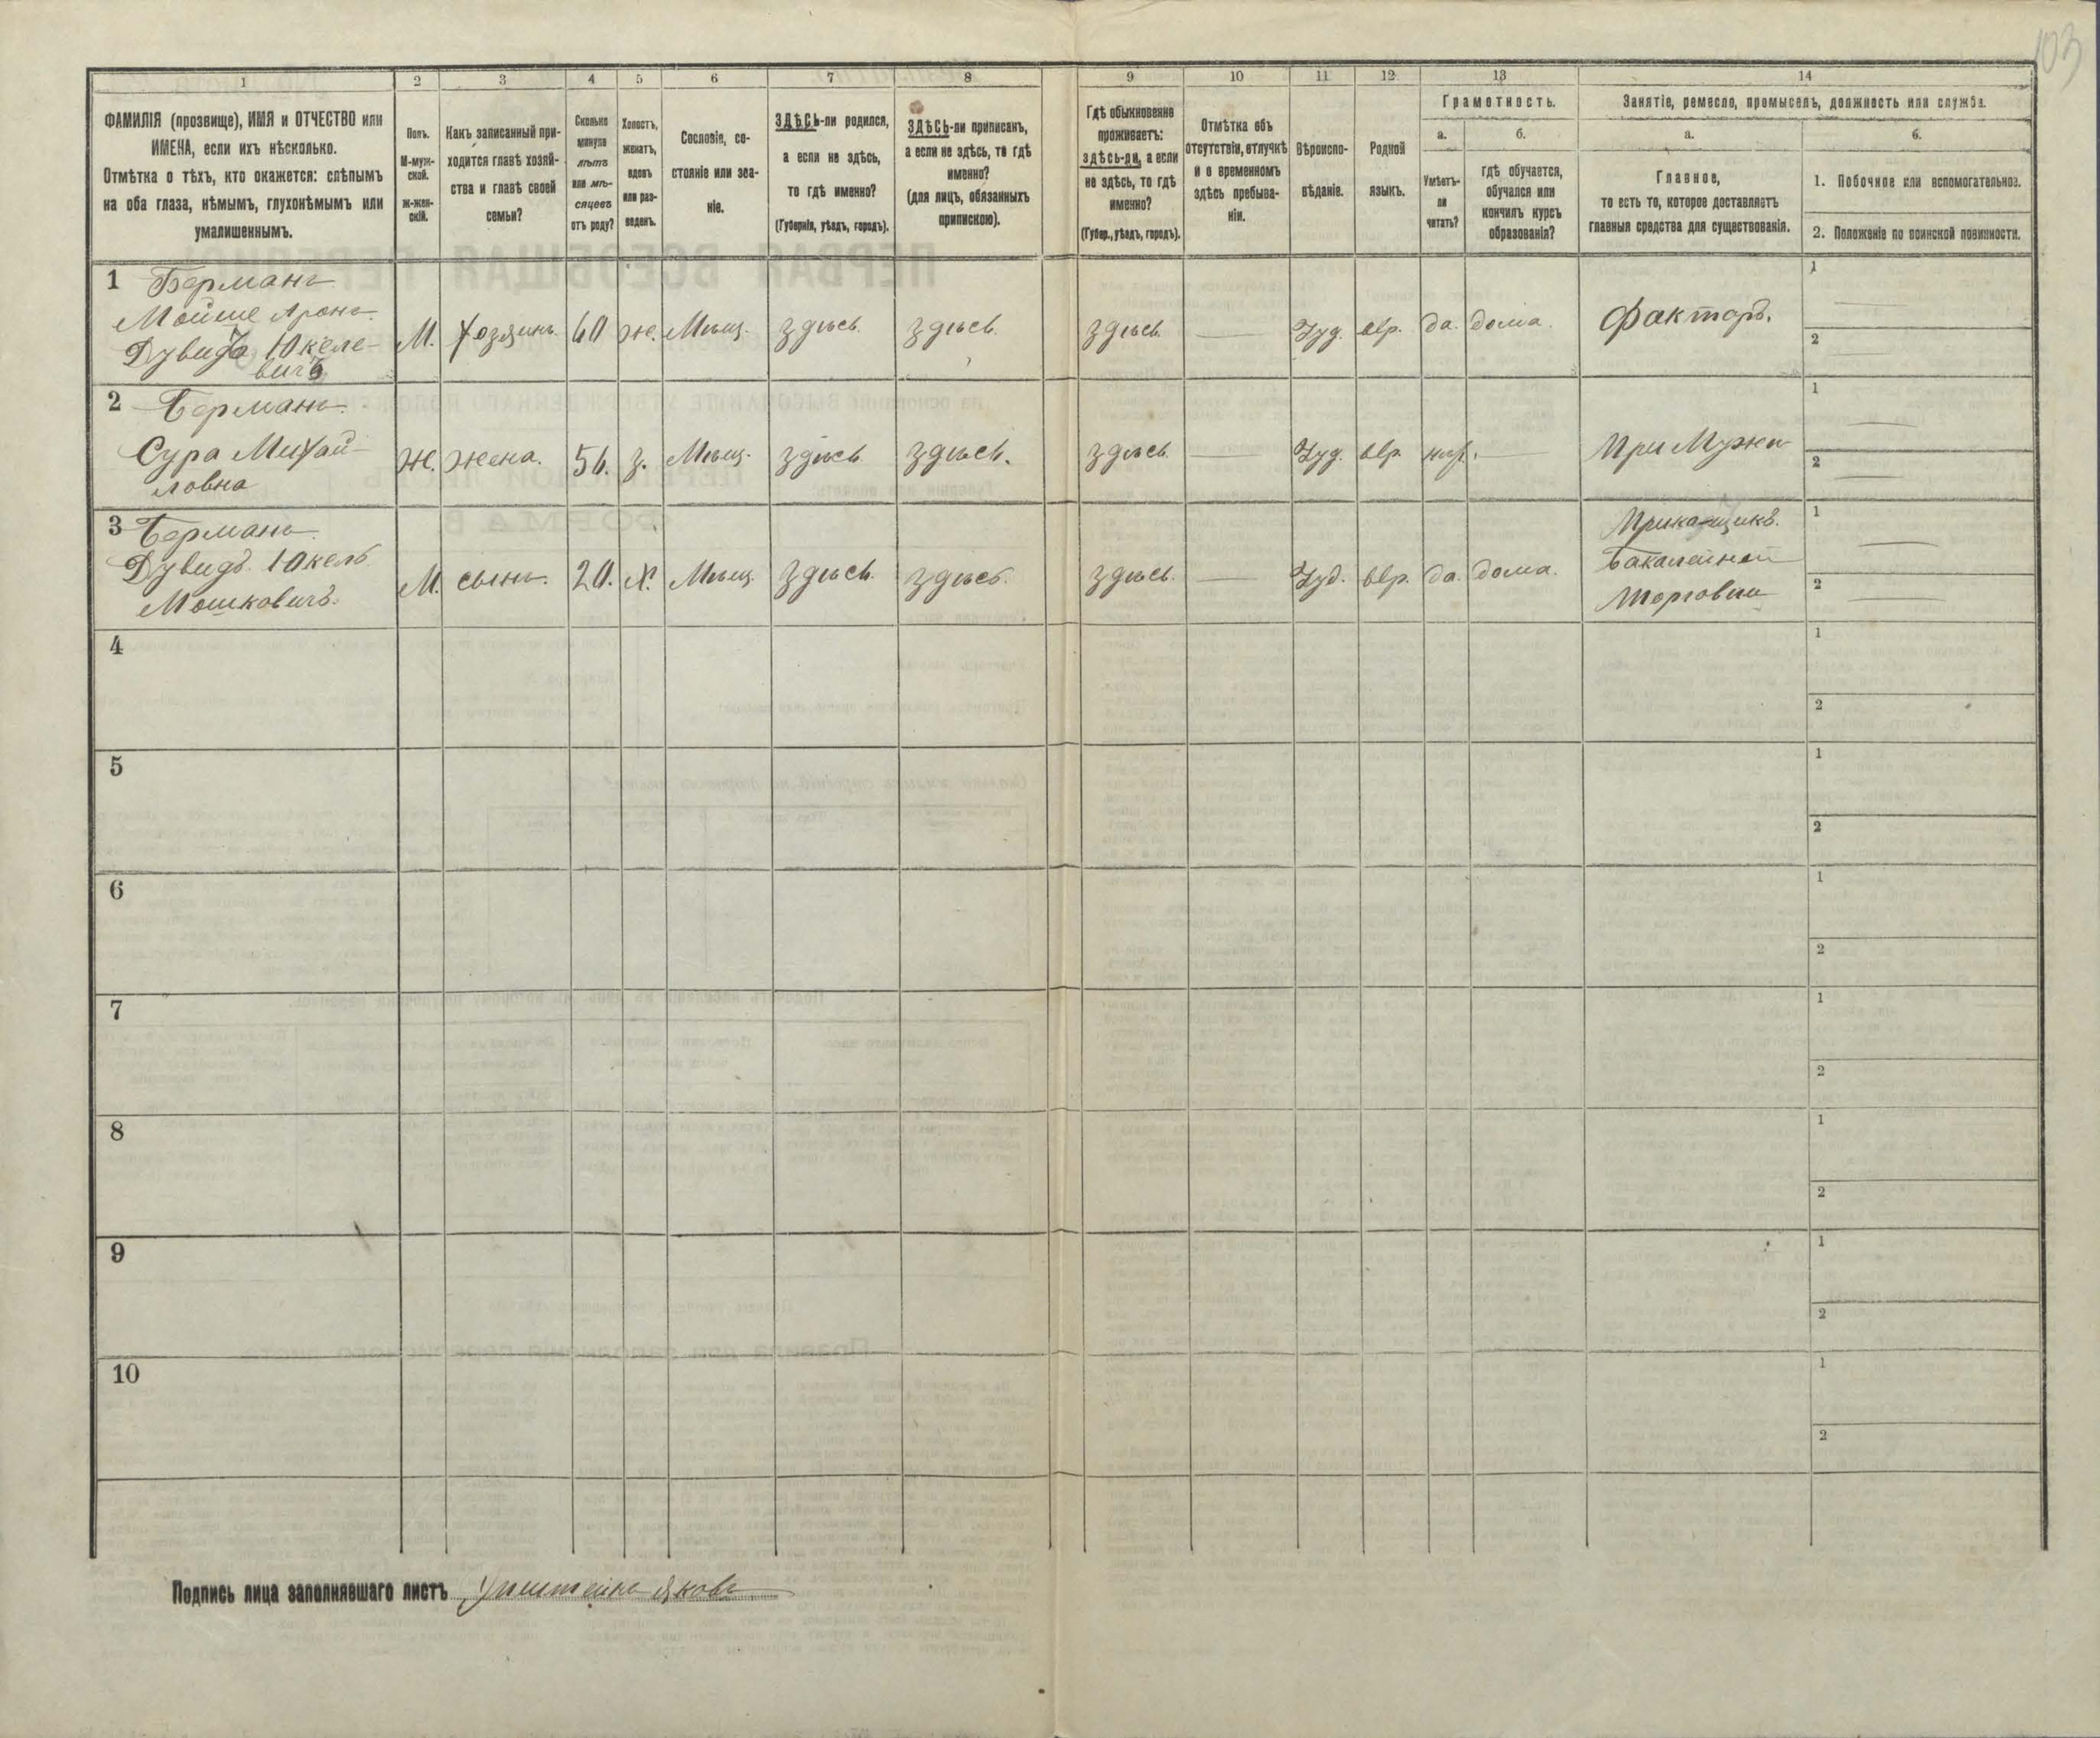 103
1
2
3
4
5
6
7
8
9
10
11
12
13
14
ФАМИЛІЯ (прозвище), ИМЯ и ОТЧЕСТВО или
ИМЕНА, если ихъ нѣсколько.
Отмѣтка о тѣхъ, кто окажется: слѣпымъ
на оба глаза, нѣмымъ, глухонѣмымъ или
умалишеннымъ.
Полъ.
М-муж-
ской.
Ж-жен-
скій.
Какъ записанный при-
ходится главѣ хозяй-
ства и главѣ своей
семьи?
Сколько
минуло
лѣтъ
или мѣ-
сяцевъ
отъ роду?
Холостъ,
женатъ,
вдовъ
или раз-
веденъ.
Сословіе, со-
стояніе или зва-
ніе.
ЗДѢСЬ-ли родился,
а если не здѣсь,
то гдѣ именно?
(Губернія, уѣздъ, городъ).
ЗДѢСЬ-ли приписанъ,
а если не здѣсь, то гдѣ
именно?
(для лицъ, обязанныхъ
припискою).
Гдѣ обыкновенно
проживаетъ:
здѣсь-ли, а если
не здѣсь, то гдѣ
именно?
(Губер., уѣздъ, городъ).
Отмѣтка объ
отсутствіи, отлучкѣ
и о временномъ
здѣсь пребыва-
ніи.
Вѣроиспо-
вѣданіе.
Родной
языкъ.
Грамотность.
а.
б.
Умѣетъ-
ли
читать?
гдѣ обучается,
обучался или
кончилъ курсъ
образованія?
Занятіе, ремесло, промыселъ, должность или служба.
а.
б.
Главное,
то есть то, которое доставляетъ
главныя средства для существованія.
1. Побочное или вспомогательное.
2. Положеніе по воинской повинности.
1 Берманъ
Мойше Аронъ
Дувидъ Юкеле-
вичъ
М. Хозяинъ 60 ж. Мѣщ. здѣсь здѣсь здѣсь — Іуд. евр. да. дома. Факторъ.
1
2
2 Берманъ.
Сура Михай-
ловна
Ж. жена. 56. з. Мѣщ. здѣсь здѣсь. здѣсь — Іуд. евр. — При Мужѣ
1
2
3 Берманъ.
Дувидъ. Юкель
Мошковичъ.
М. сынъ. 20. Х. Мѣщ. здѣсь. здѣсь. здѣсь. — Іуд. евр. да. дома. Приказщикъ.
бакалейной
торговли
1
2
4
1
2
5
1
2
6
1
2
7
1
2
8
1
2
9
1
2
10
1
2
Подпись лица заполнявшаго листъ